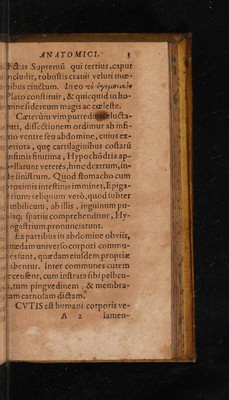 ANATOMICI. 3
ctus Supremū qui tertius, caput
includit, robustis cranii veluti mœ-
nibus cinctum. In eo τὸ ἡγεμονικὸν
Plato constituit, & quicquid in ho-
mine sidereum magis ac cœleste.
Cæterùm vim putredinis eluctaturi, dissectionem ordimur ab infi-
mo ventre seu abdomine, cuius ex-
teriora, quę cartilaginibus costarū
infimis finitima, Hypochōdria ap-
pellarunt veteres, hinc dextrum, in-
de sinistrum. Quod stomacho cum
proximis intestinis imminet, Epiga-
trium: reliquum verò, quod subter
umbilicum, ab illis, inguinum pu-
bisq; spatiis comprehenditur, Hy-
pogastrium pronunciarunt.
Ex partibus in abdomine obviis,
quædam universo corpori commu-
nes sunt, quædam eiusdem propriæ
habentur. Inter communes cutem
recensent, cum instrata sibi pellicu-
la, tum pingvedinem, & membra-
nam carnosam dictam.
CVTIS est humani corporis ve-
A 2 lamen-